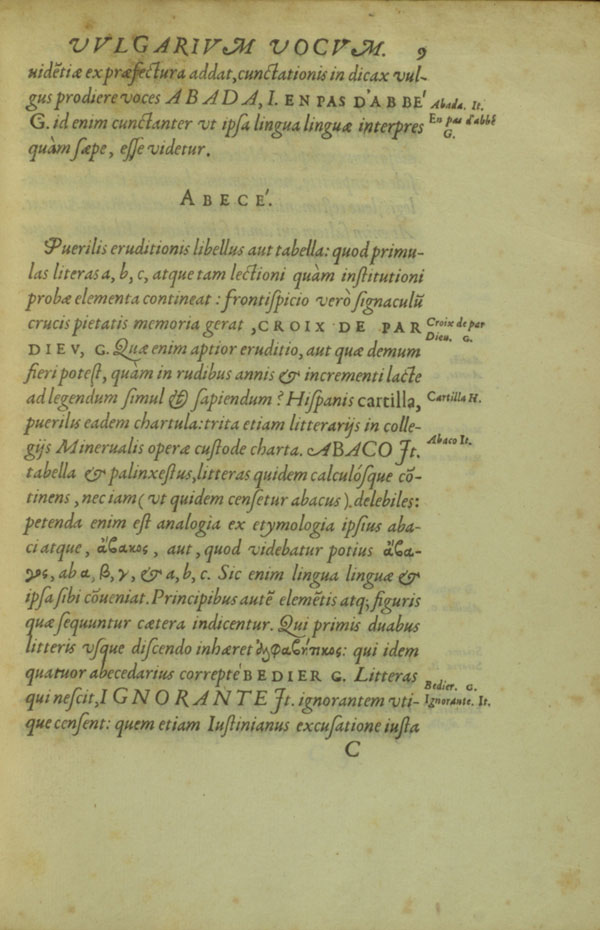 VVLGARIVM VOCVM. 9
uidẽtiæ ex præfectura addat, cunctationis in dicax vul-
gus prodiere voces ABADA, I. EN PAS D'ABBE'
G. id enim cunctanter vt ipsa lingua linguæ interpres
quàm sæpe, esse videtur.
Abada. It.
En pas d'abbé
G.
ABECE'.
Puerilis eruditionis libellus aut tabella: quod primu-
las literas a, b, c, atque tam lectioni quàm institutioni
probæ elementa contineat: frontispicio verò signaculũ
crucis pietatis memoria gerat, CROIX DE PAR
DIEV, G. Quæ enim aptior eruditio, aut quæ demum
fieri potest, quàm in rudibus annis & incrementi lacte
ad legendum simul & sapiendum? Hispanis cartilla,
puerilis eadem chartula: trita etiam litterarijs in colle-
gijs Minerualis operæ custode charta. ABACO It.
tabella & palinxestus, litteras quidem calculósque cõ-
tinens, nec iam (vt quidem censetur abacus). delebiles:
petenda enim est analogia ex etymologia ipsius aba-
ci atque, ἄβακος, aut, quod videbatur potius ἄβα-
γος, ab α, β, γ, & a, b, c. Sic enim lingua linguæ &
ipsa sibi cõueniat. Principibus autẽ elemẽtis atq; figuris
quæ sequuntur cætera indicentur. Qui primis duabus
litteris vsque discendo inhæret ἀλφαβήτικος: qui idem
quatuor abecedarius correptè BEDIER G. Litteras
qui nescit, IGNORANTE It. ignorantem vti-
que censent: quem etiam Iustinianus excusatione iusta
Croix de par
Dieu. G.
Cartilla H.
Abaco It.
Bedier. G.
Ignorante. It.
C